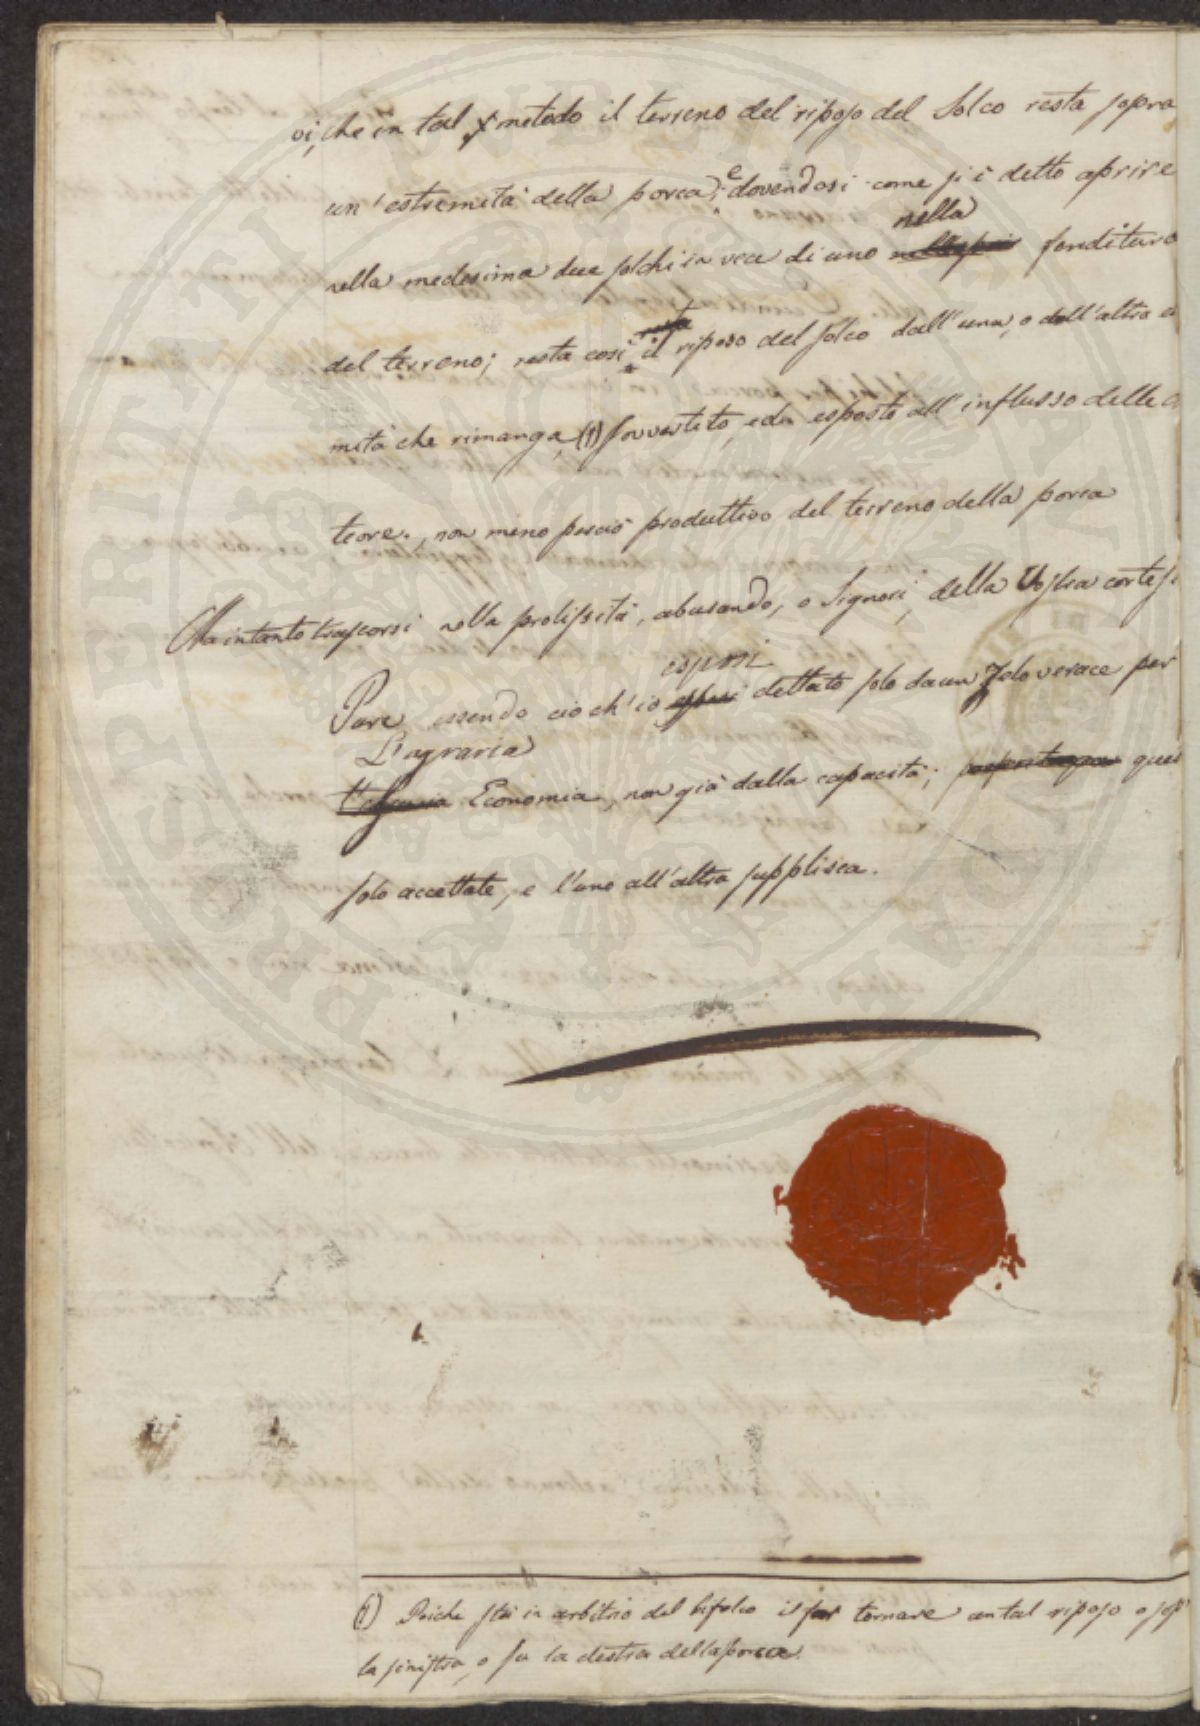 oi, che in tal metodo il terreno del riposo del Solco resta sopra
un'estremità della porca; e dovendosi come si è detto aprire
nella medesima due solchi in vece di uno nella fenditura
del terreno; resta così il riposo del solco dall'una, o dall'altra
mità che rimanga, (1) sovvertito, ed esposto all'influsso delle
teore, non meno perciò produttivo del terreno della porca
Ma intanto trascorsi nella prolissità, abusando, o Signori, della Vostra cortesi
Pure essendo ciò ch'io esposi dettato solo da un Zelo verace per
L'agraria
Economia, non già dalla capacità; ques
solo accettate, e l'uno all'altra supplisca.
(1) Poiche sta in arbitrio del bifolco il far tornare un tal riposo o sop
la sinistra, o su la destra della porca.
PROSPERITATI PUBLICAE